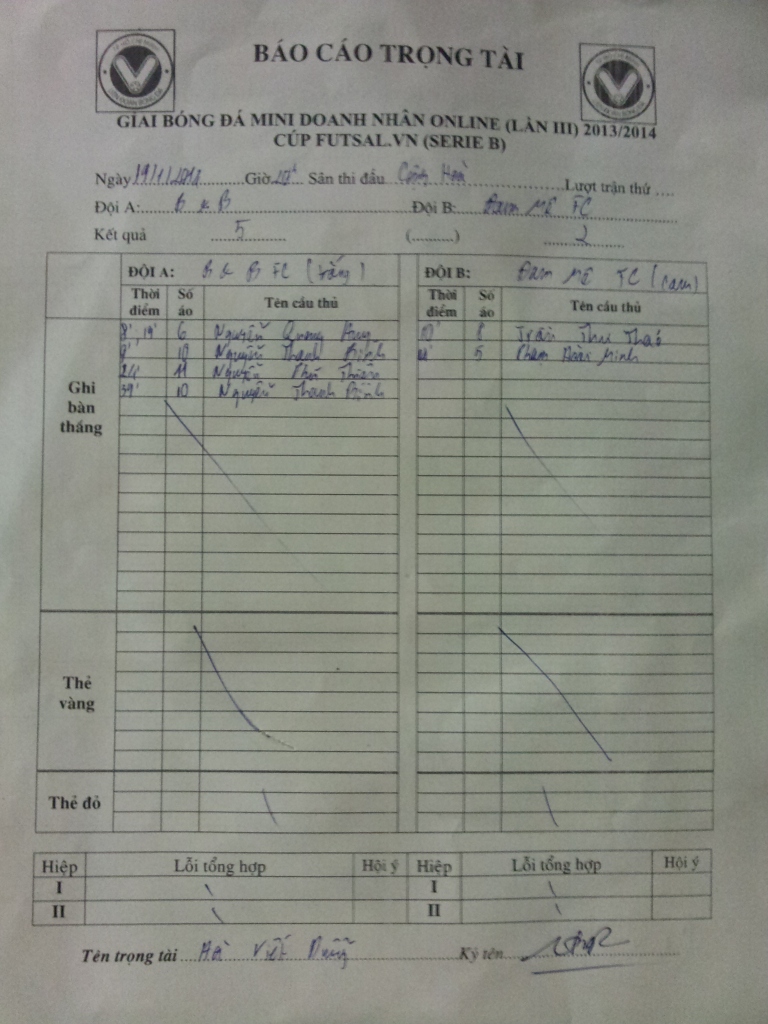 BÁO CÁO TRỌNG TÀI
GIẢI BÓNG ĐÁ MINI DOANH NHÂN ONLINE (LẦN III) 2013/2014
CÚP FUTSAL.VN (SERIE B)
Ngày 19/1/2014 Giờ Sân thi đấu Cộng Hoà Lượt trận thứ ....
Đội A: B & B Đội B: Đam Mê FC
Kết quả 5 (..........) 2
ĐỘI A: B & B FC (trắng) ĐỘI B: Đam Mê FC (cam)
Thời điểm Số áo Tên cầu thủ Thời điểm Số áo Tên cầu thủ
Ghi bàn thắng
8', 19' 6 Nguyễn Quang Huy 10' 8 Trần Thu Thảo
10 Nguyễn Thanh Bình 5 Phạm Hoài Minh
24' 11 Nguyễn Phú Thiên
39' 10 Nguyễn Thanh Bình
Thẻ vàng
Thẻ đỏ
Hiệp Lỗi tổng hợp Hội ý Hiệp Lỗi tổng hợp Hội ý
I I
II II
Tên trọng tài Hà Viết Dũng Ký tên